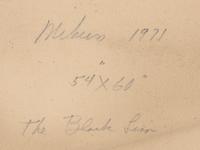 Mikus 1971
54" X 60"
The Black Lion